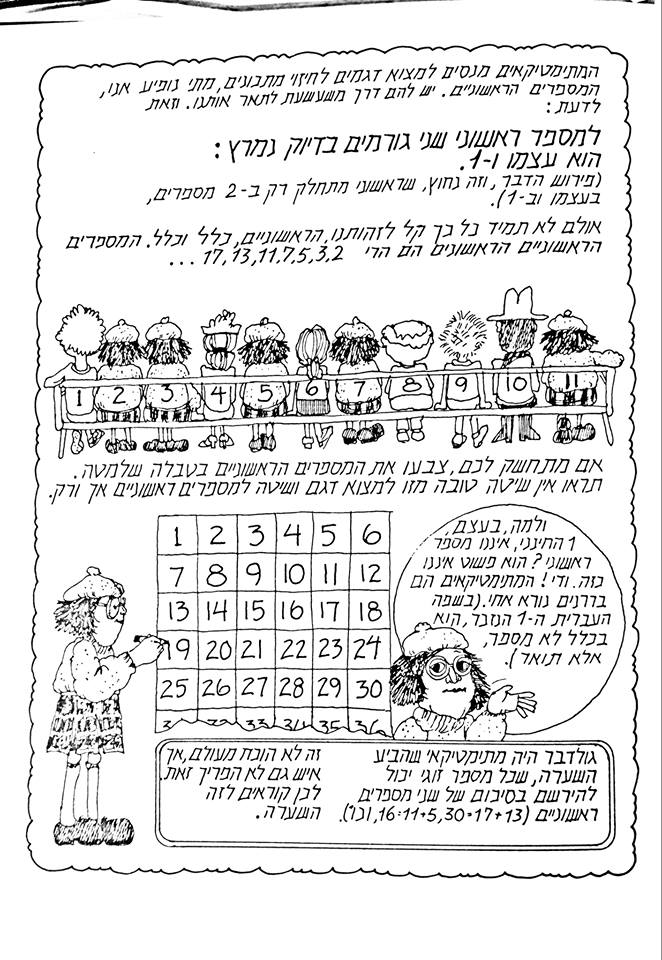 המתימטיקאים מנסים למצוא דגמים לחיזוי מתכונים, מתי נופיע אנו,
המספרים הראשוניים. יש להם דרך משעשעת לתאר אותנו. וזאת
לדעת:
למספר ראשוני שני גורמים בדיוק נמרץ:
הוא עצמו ו-1.
(פירוש הדבר, וזה נחוץ, שראשוני מתחלק רק ב-2 מספרים,
בעצמו וב-1).
אולם לא תמיד כל כך קל לזהותנו, הראשוניים, כלל וכלל. המספרים
הראשוניים הראשונים הם הרי 2, 3, 5, 7, 11, 13, 17 ...
1 2 3 4 5 6 7 8 9 10 11
אם מתחשק לכם, צבעו את המספרים הראשוניים בטבלה שלמטה.
תראו אין שיטה טובה מזו למצוא דגם ושיטה למספרים ראשוניים אך ורק.
1 2 3 4 5 6
7 8 9 10 11 12
13 14 15 16 17 18
19 20 21 22 23 24
25 26 27 28 29 30
33 34 35 36
ולמה, בעצם,
1 החינני, איננו מספר
ראשוני? הוא פשוט איננו
כזה. ודי! המתימטיקאים הם
בררנים נורא אחי. (בשפה
העברית ה-1 הנזכר, הוא
בכלל לא מספר,
אלא תואר).
גולדבך היה מתימטיקאי שהביע
השערה, שכל מספר זוגי יכול
להירשם בסיכום של שני מספרים
ראשוניים (13+17=30, 5+11=16, וכו').
זה לא הוכח מעולם, אך
איש גם לא הפריך זאת.
לכן קוראים לזה
השערה.